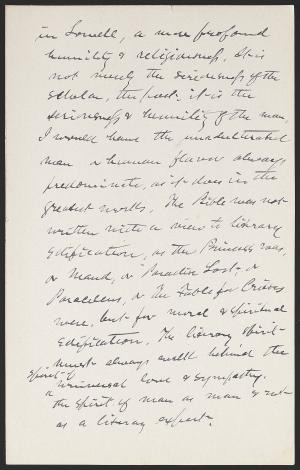 in Lowell, a more profound
humility & religiousness. It is
not merely the seriousness of the
scholar, the poet: it is the
seriousness & humility of the man.
I would have the unadulterated
man or human flavor always
predominate, as it does in the
greatest works. The Bible was not
written with a view to literary
edification, as the Princess was,
or Maud, or Paradise Lost, or
Paracelsus, or The Fable for Critics
were, but for moral & spiritual
edification. The literary spirit
must always dwell behind the
spirit of
a universal love & sympathy.
the spirit of man as man & not
as a literary expert.